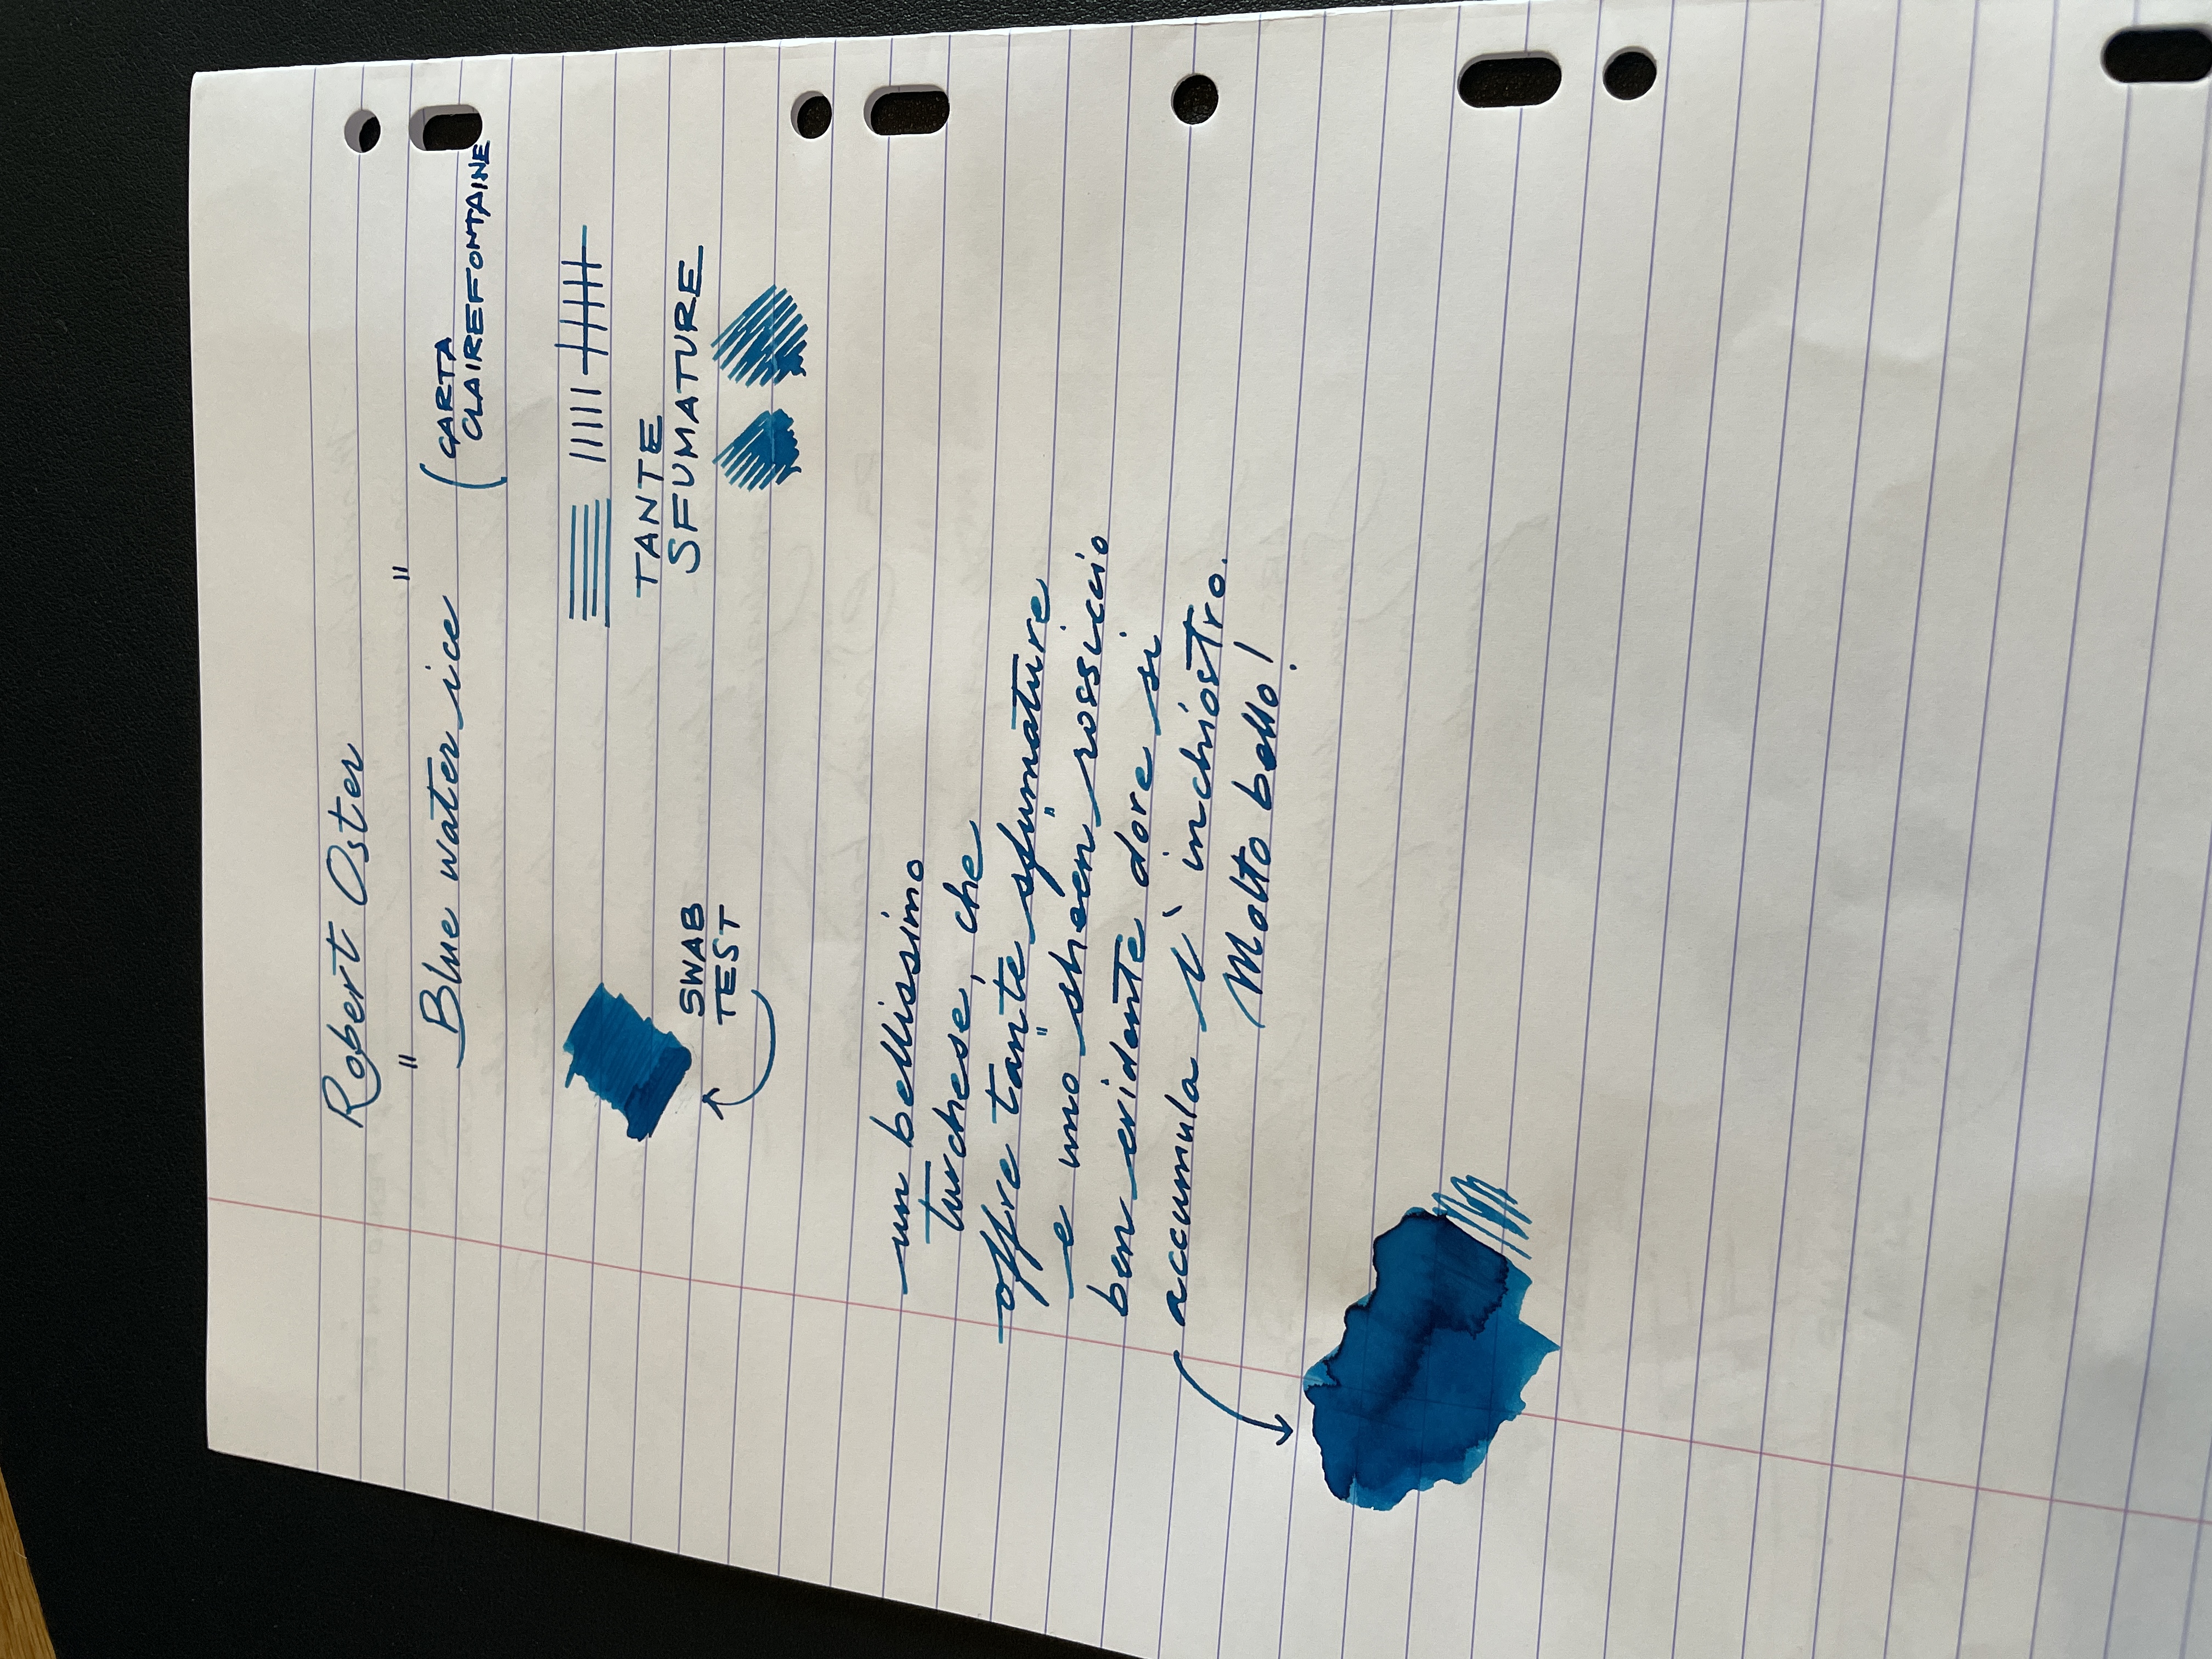 Robert Oster
"Blue water ice"
(CARTA
CLAIREFONTAINE
TANTE
SFUMATURE
SWAB
TEST
un bellissimo
turchese, che
offre tante sfumature
e uno "sheen" rossiccio
ben evidente dove si
accumula l' inchiostro.
Molto bello!